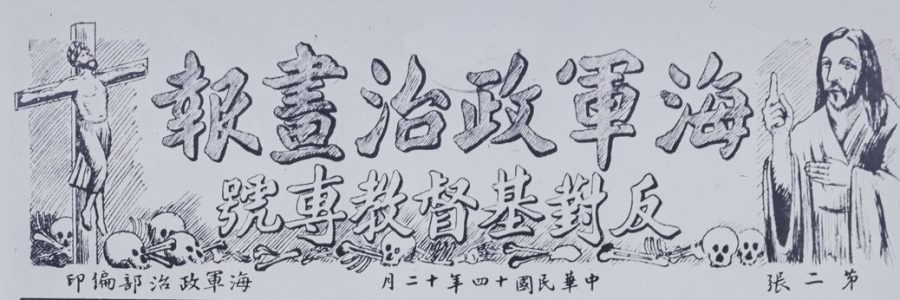 海軍政治畫報
反對基督教專號
第二張
中華民國十四年十二月
海軍政治部編印